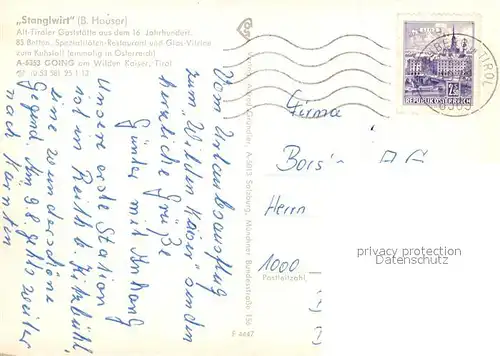 „Stanglwirt" (B. Hauser)
Alt-Tiroler Gaststätte aus dem 16. Jahrhundert.
85 Betten, Spezialitäten-Restaurant und Glas-Vitrine
zum Kuhstall (einmalig in Österreich)
A-6353 GOING am Wilden Kaiser, Tirol
(0 53 58) 25 1 12
Vom Urlaubsausflug
zum "Wilden Kaiser" senden
herzliche Grüße
Günter mit Anhang
Unsere erste Station
ist in Reith b. Kitzbühl,
eine wunderschöne
Gegend. Am 9.8. geht's weiter
nach Kärnten
A-5013 Salzburg, Münchner Bundesstraße 156
F 4447
TIROL
REPUBLIK ÖSTERREICH
Firma
Herrn
1000
Postleitzahl
privacy protection
watermark